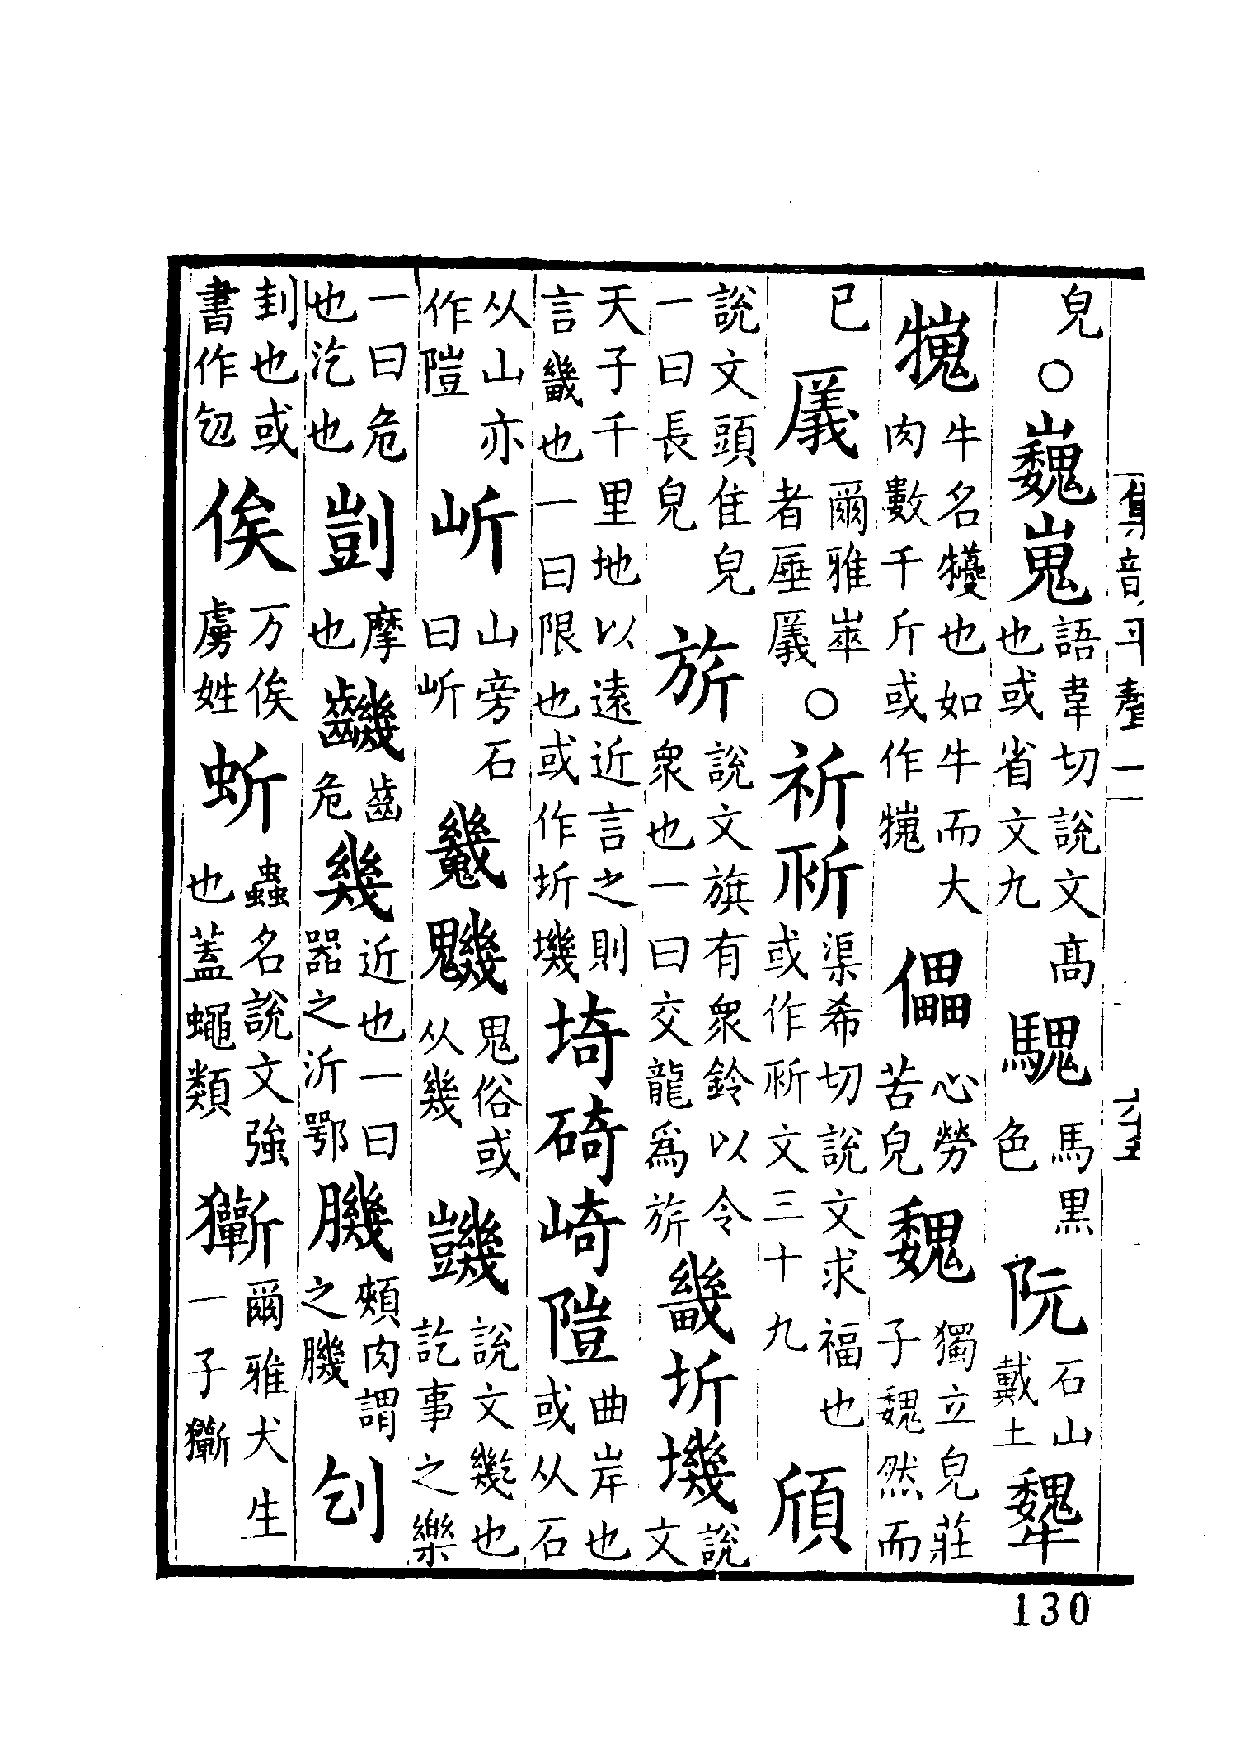 皃○巍嵬語韋切說文高也或省文九騩馬黑色阮石山戴土犩
犤牛名犪也如牛而大肉數千斤或作犩儡心勞苦皃魏獨立皃莊子魏然而
已㕒爾雅崒者厜㕒○祈祈渠希切說文求福也或作祈文三十九頎
說文頭佳皃一曰長皃旂說文旗有衆鈴以令衆也一曰交龍爲旂畿圻㙨說文
天子千里地以遠近言之則言畿也一曰限也或作圻㙨埼碕崎隑曲岸也或从石
从山亦作隑岓山旁石曰岓鬾䰇鬼俗或从幾䡋說文㡬也訖事之樂
一曰危也汔也剴摩也䶓齒危幾近也一曰器之沂鄂䐀頰肉謂之䐀刉
刲也或書作刏俟万俟虜姓蚚蟲名說文強也蓋蠅類玂爾雅犬生一子玂
平聲二
130